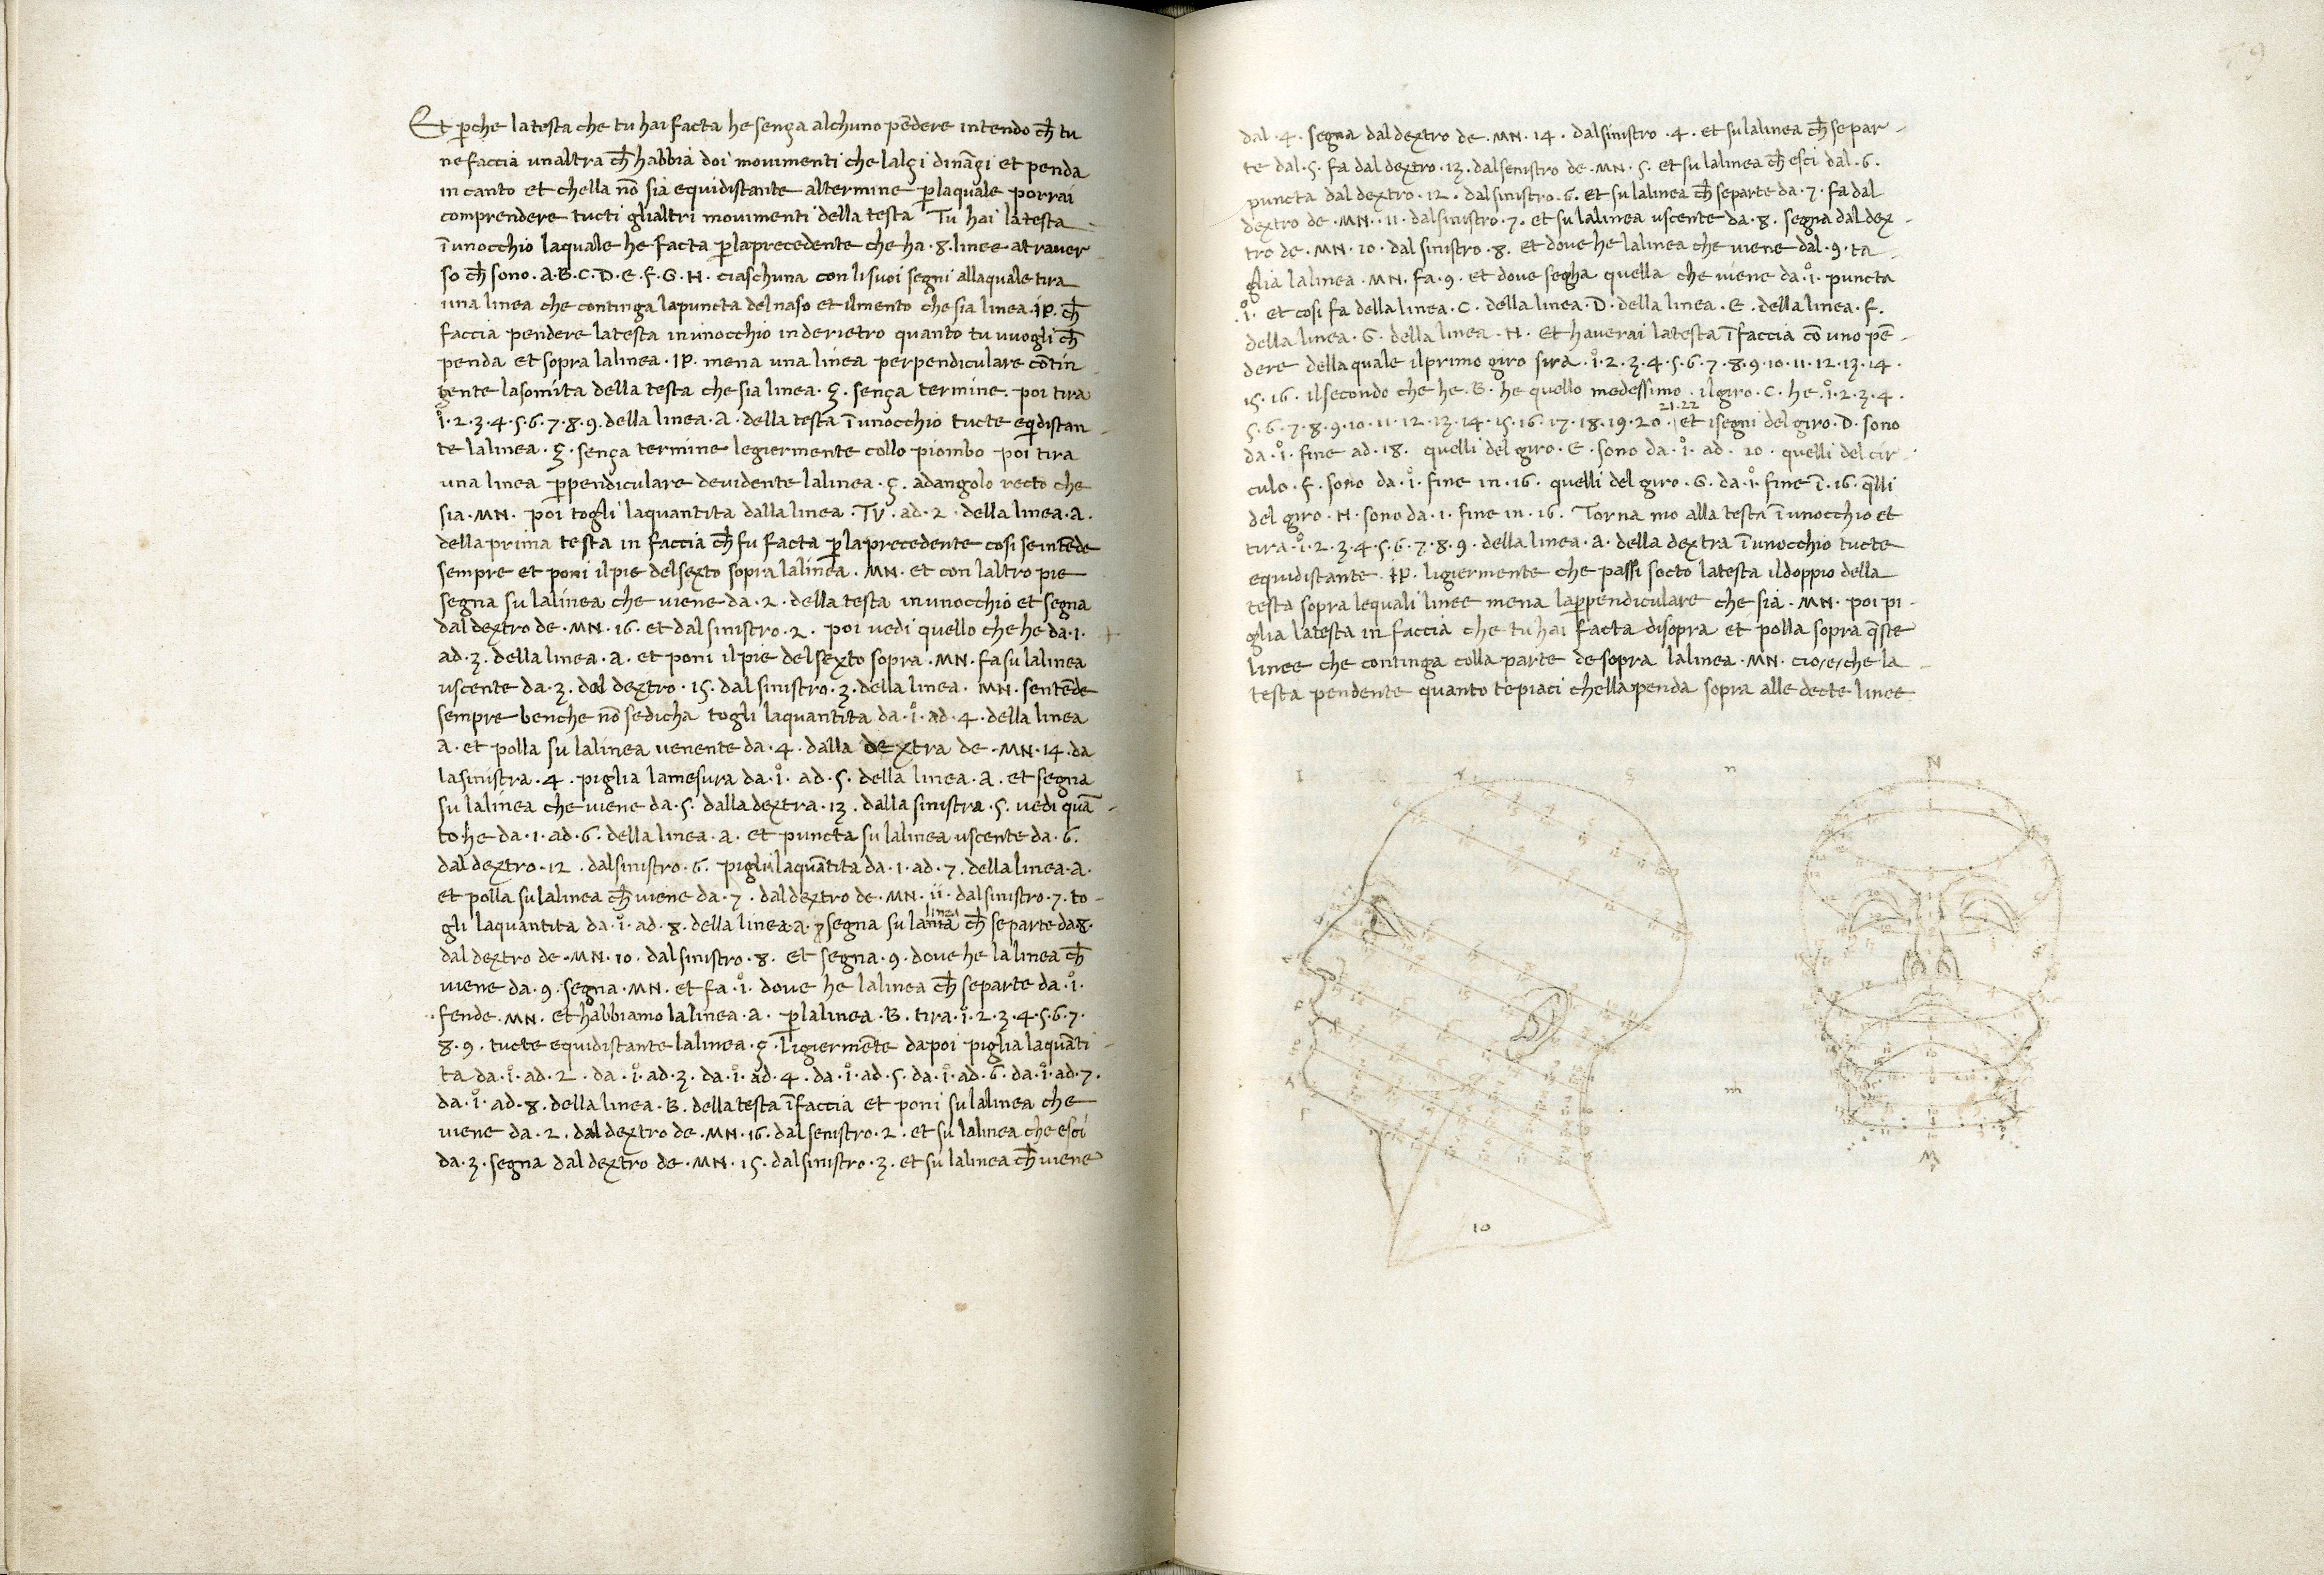 Et p̄che la testa che tu hai facta he sença alchuno pēdere intendo ch̄ tu
ne faccia unaltra ch̄ habbia doi movimenti che lalçi dināçi et penda
in canto et chella nō sia equidistante altermine p̄ laquale porrai
comprendere tucti glialtri movimenti della testa Tu hai la testa
ī unocchio laquale he facta p̄ la precedente che ha .8. linee atraver
so ch̄ sono .A.B.C.D.E.F.G.H. ciaschuna con li suoi segni allaquale tira
una linea che continga la puncta del naso et il mento che sia linea .IK. ch̄
faccia pendere la testa in unocchio inderietro quanto tu vuogli ch̄
penda et sopra la linea .IK. mena una linea perpendiculare cōtin
gente la somita della testa che sia linea .ç. sença termine. poi tira
1.2.3.4.5.6.7.8.9. della linea .A. della testa ī unocchio tucte eq̄distan-
te la linea .ç. sença termine legiermente collo piombo poi tira
una linea p̄pendiculare devidente la linea .ç. adangolo recto che
sia .MN. poi togli la quantita dalla linea .TV. ad .2. della linea .A.
della prima testa in faccia ch̄ fu facta p̄ la precedente cosi se intēde
sempre et poni il pie del sexto sopra la linea .MN. et con laltro pie
segna su la linea che viene da .2. della testa in unocchio et segna
dal dextro de .MN. 16. et dal sinistro .2. poi vedi quello che he da .1.
ad .3. della linea .A. et poni il pie del sexto sopra .MN. fa su la linea
uscente da .3. dal dextro .15. dal sinistro .3. della linea .MN. sentēde
sempre benche nō se dicha togli la quantita da .1. ad .4. della linea
A. et polla su la linea venente da .4. dalla dextra de .MN. 14. da
la sinistra .4. piglia la mesura da .1. ad .5. della linea .A. et segna
su la linea che viene da .5. dalla dextra .13. dalla sinistra .5. vedi quā-
to he da .1. ad .6. della linea .A. et puncta su la linea uscente da .6.
dal dextro .12. dal sinistro .6. piglia la quātita da .1. ad .7. della linea .A.
et polla su la linea ch̄ viene da .7. dal dextro de .MN. 11. dal sinistro .7. to-
gli la quantita da .1. ad .8. della linea .A. & segna su la linea ch̄ se parte da 8.
dal dextro de .MN. 10. dal sinistro .8. et segna .9. dove he la linea ch̄
viene da .9. segna .MN. et fa .1. dove he la linea ch̄ se parte da .1.
fende .MN. et habbiamo la linea .A. p̄ la linea .B. tira .1.2.3.4.5.6.7.
8.9. tucte equidistante la linea .ç. ligiermēte dapoi piglia la quāti-
ta da .1. ad .2. da .1. ad .3. da .1. ad .4. da .1. ad .5. da .1. ad .6. da .1. ad .7.
da .1. ad .8. della linea .B. della testa ī faccia et poni su la linea che
viene da .2. dal dextro de .MN. 16. dal senistro .2. et su la linea che esci
da .3. segna dal dextro de .MN. 15. dal sinistro .3. et su la linea ch̄ viene
dal .4. segna dal dextro de .MN. 14. dal sinistro .4. et su la linea ch̄ se par-
te dal .5. fa dal dextro .13. dal senistro de .MN. 5. et su la linea ch̄ esci dal .6.
puncta dal dextro .12. dal sinistro .6. et su la linea ch̄ se parte da .7. fa dal
dextro de .MN. 11. dal sinistro .7. et su la linea uscente da .8. segna dal dex-
tro de .MN. 10. dal sinistro .8. et dove he la linea che viene dal .9. ta-
glia la linea .MN. fa .9. et dove segha quella che viene da .1. puncta
.1. et cosi fa della linea .C. della linea .D. della linea .E. della linea .F.
della linea .G. della linea .H. et haverai la testa ī faccia cō uno pē-
dere della quale il primo giro sira .1.2.3.4.5.6.7.8.9.10.11.12.13.14.
15.16. il secondo che he .B. he quello medessimo. il giro .C. he .1.2.3.4.
5.6.7.8.9.10.11.12.13.14.15.16.17.18.19.20.21.22 et i segni del giro .D. sono
da .1. fine ad .18. quelli del giro .E. sono da .1. ad .20. quelli del cir-
culo .F. sono da .1. fine in .16. quelli del giro .G. da .1. fine ī .16. q̄lli
del giro .H. sono da .1. fine in .16. Torna mo alla testa ī unocchio et
tira .1.2.3.4.5.6.7.8.9. della linea .A. della dextra ī unocchio tucte
equidistante .IK. ligiermente che passi socto la testa il doppio della
testa sopra le quali linee mena la p̄pendiculare che sia .MN. poi pi-
glia la testa in faccia che tu hai facta disopra et polla sopra q̄ste
linee che continga colla parte de sopra la linea .MN. cio/e/ che la
testa pendente quanto te piaci chella penda sopra alle decte linee
n
N
m
M
10